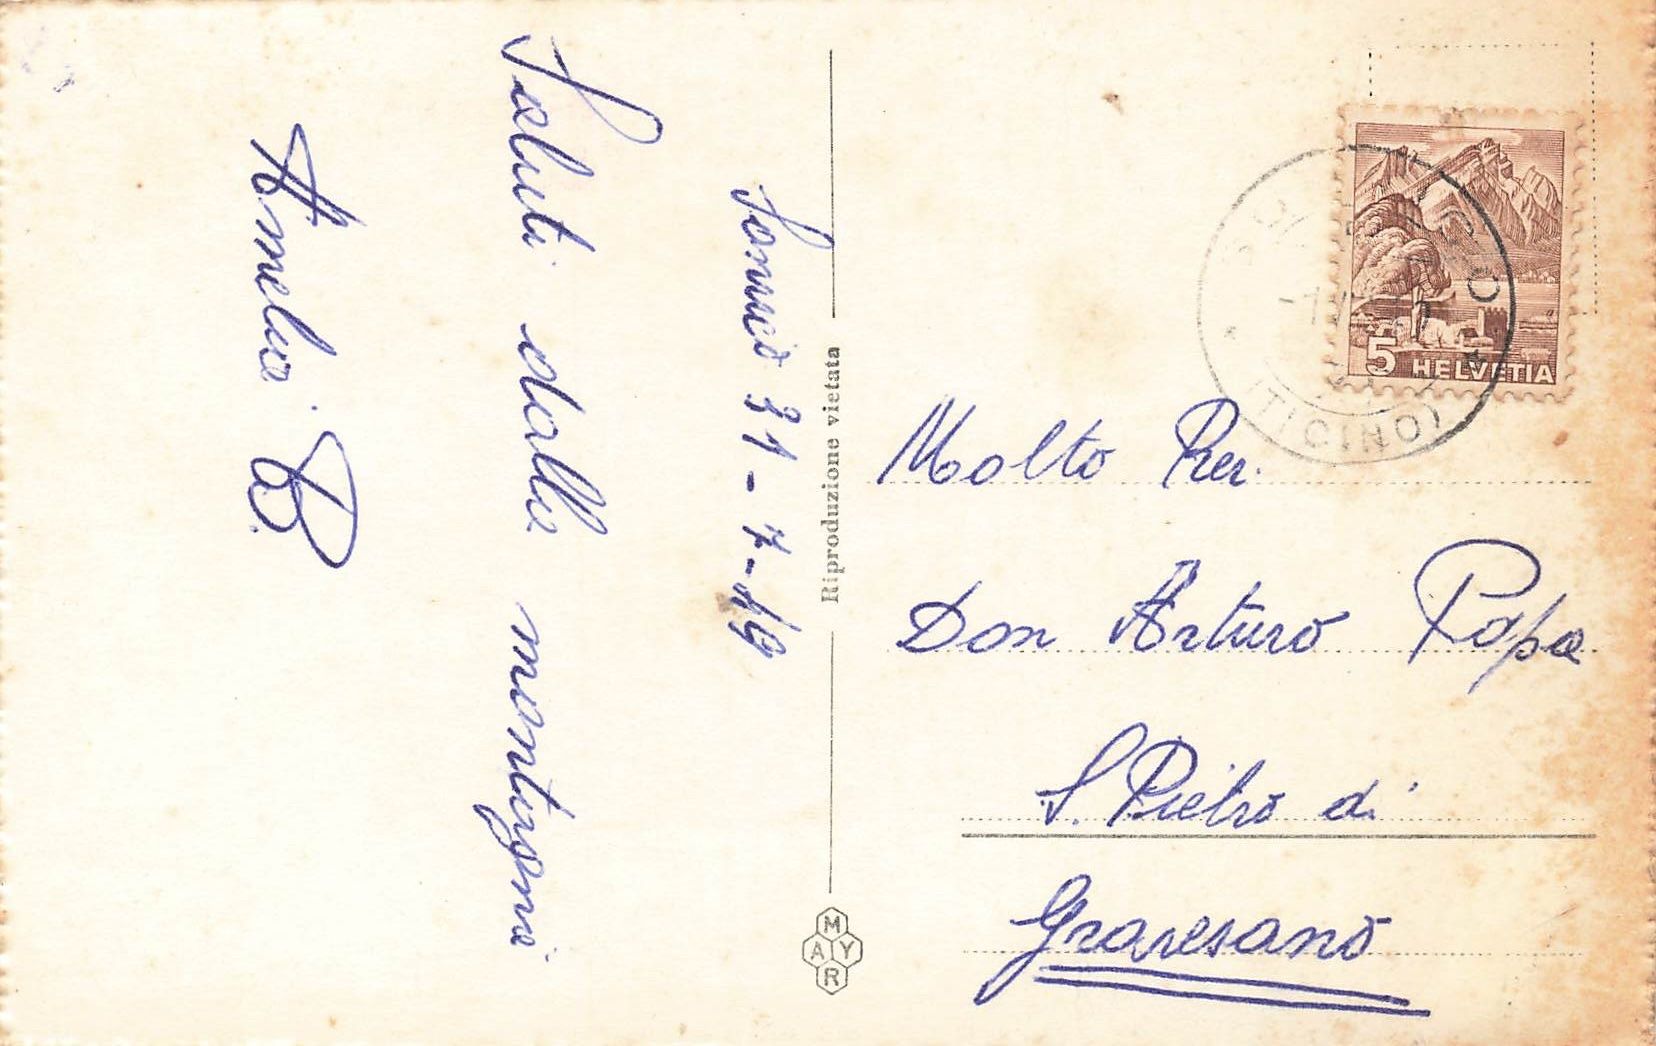 Sonvico 31-7-49
Saluti dalla montagna
Amelia B.
Riproduzione vietata
MAYR
Molto Rev.
Don Arturo Papa
S. Pietro di
Gravesano
5 HELVETIA
(TICINO)